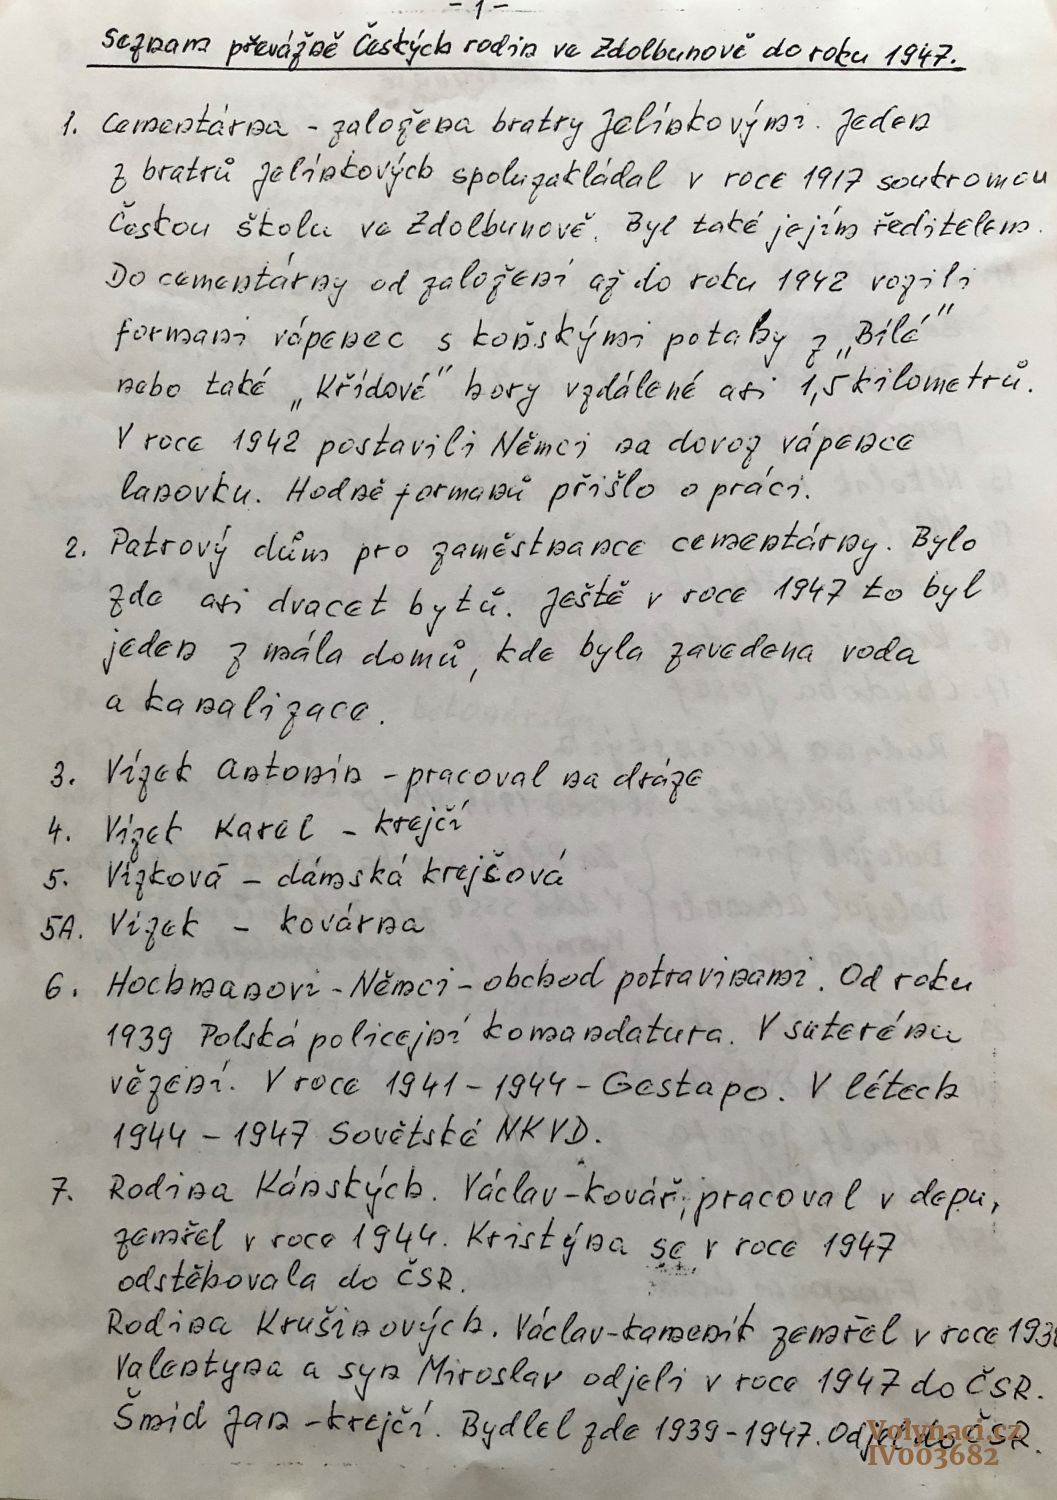 - 1 -
Seznam převážně Českých rodin ve Zdolbunově do roku 1947.
1. Cementárna - založena bratry Jelínkovými. Jeden
z bratrů Jelínkových spoluzakládal v roce 1917 soukromou
Českou školu ve Zdolbunově. Byl také jejím ředitelem.
Do cementárny od založení až do roku 1942 vozili
formani vápenec s koňskými potahy z „Bílé"
nebo také „Křídové" hory vzdálené asi 1,5 kilometrů.
V roce 1942 postavili Němci na dovoz vápence
lanovku. Hodně formanů přišlo o práci.
2. Patrový dům pro zaměstnance cementárny. Bylo
zde asi dvacet bytů. Ještě v roce 1947 to byl
jeden z mála domů, kde byla zavedena voda
a kanalizace.
3. Vízek Antonín - pracoval na dráze
4. Vízek Karel - krejčí
5. Vízková - dámská krejšová
5A. Vízek - kovárna
6. Hochmanovi - Němci - obchod potravinami. Od roku
1939 Polská policejní komandatura. V suterénu
vězení. V roce 1941 - 1944 - Gestapo. V létech
1944 - 1947 Sovětské NKVD.
7. Rodina Kánských. Václav - kovář, pracoval v depu,
zemřel v roce 1944. Kristýna se v roce 1947
odstěhovala do ČSR.
Rodina Krušinových. Václav - kameník zemřel v roce
Valentyna a syn Miroslav odjeli v roce 1947 do ČSR.
Šmid Jan - krejčí. Bydlel zde 1939 - 1947. Odjel do ČSR.
Volynaci.cz
IV003682